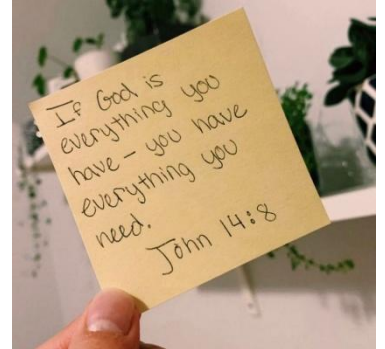 If God is
everything you
have – you have
everything you
need.
John 14:8